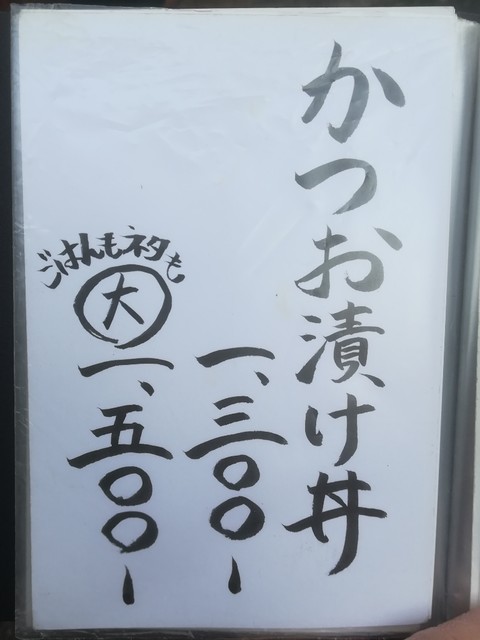 かつお漬け丼
一、三〇〇ー
ごはんもネタも
大
一、五〇〇ー